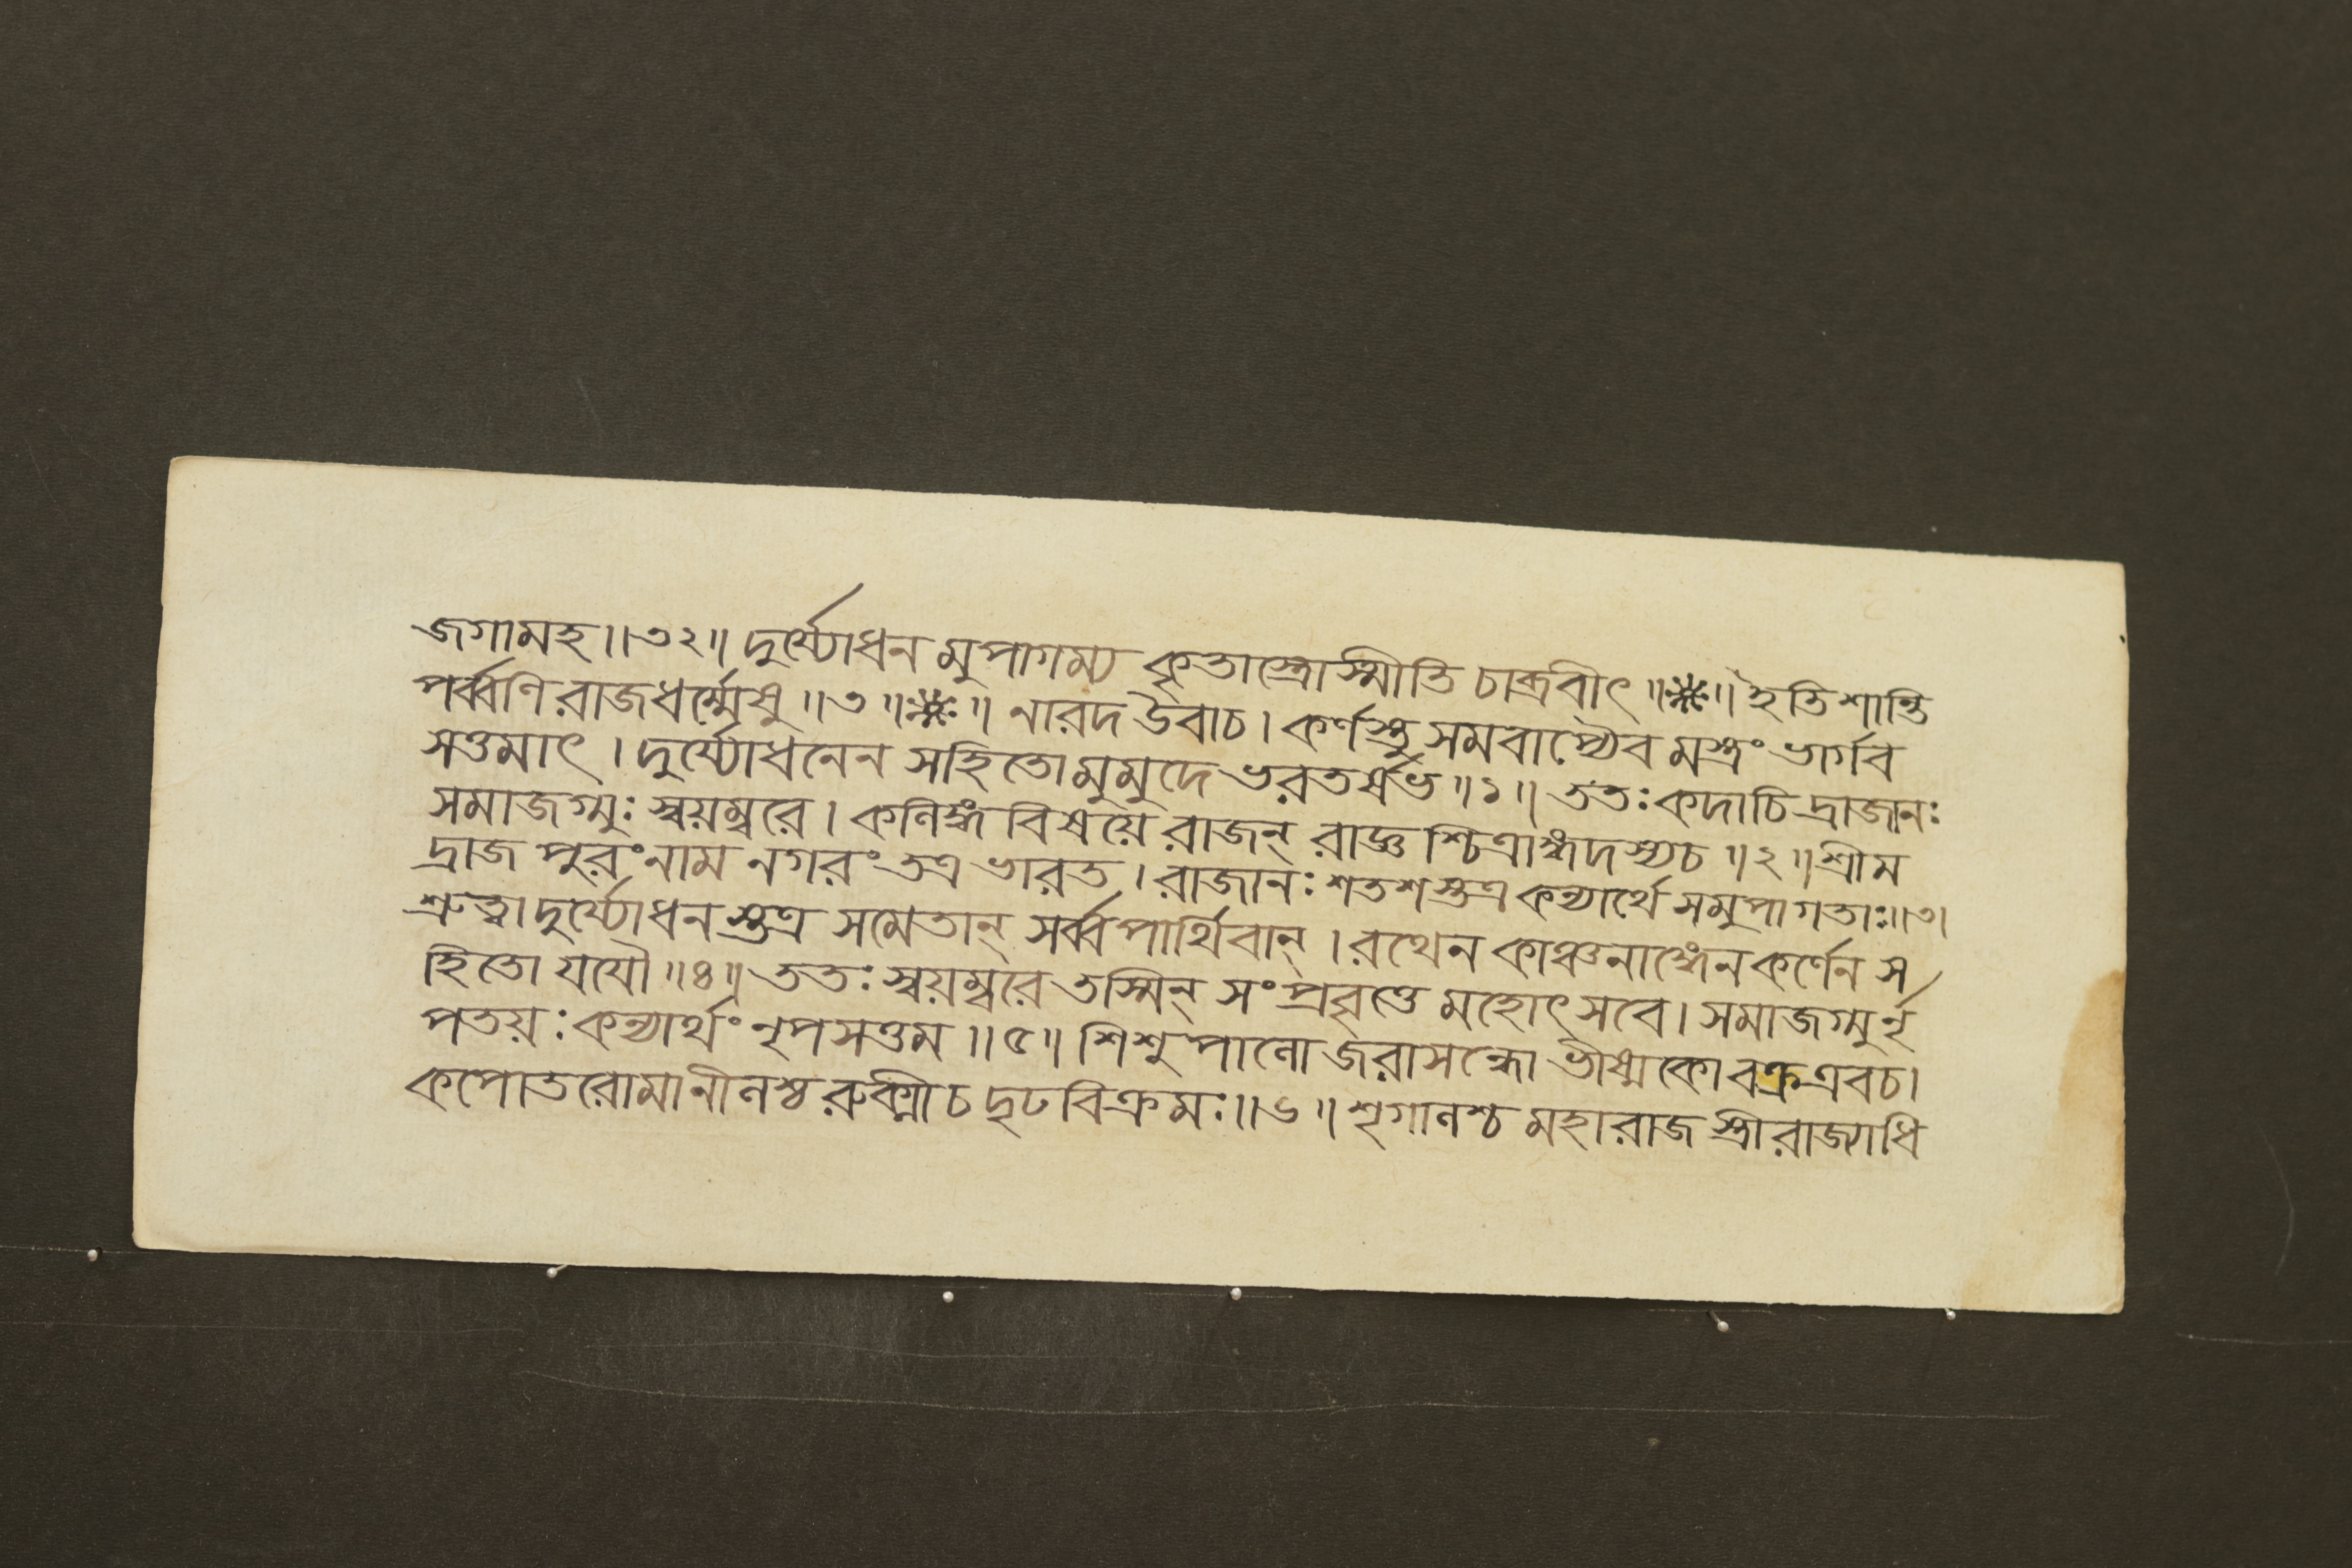 জগামহ ॥ ৩২ ॥ দুর্য্যোধন মুপাগম্য কৃতাস্ত্রোস্মীতি চাব্রবীৎ ॥ ※ ॥ ইতি শান্তি
পর্ব্বণি রাজধর্ম্মেষু ॥ ৩ ॥ ※ ॥ নারদ উবাচ । কর্ণস্তু সমবাপ্যৈব মস্ত্রং ভার্গব
সত্তমাৎ । দুর্য্যোধনেন সহিতো মুমুদে ভরতর্ষভ ॥ ১ ॥ ততঃ কদাচি দ্রাজানঃ
সমাজগ্মুঃ স্বয়ম্বরে । কণিঙ্গ বিষয়ে রাজন্ রাজ্ঞ শ্চিত্রাঙ্গদস্যচ ॥ ২ ॥ শ্রীম
দ্রাজ পুরং নাম নগরং তত্র ভারত । রাজানঃ শতশ স্তত্র কন্যার্থে সমুপাগতাঃ ॥ ৩ ।
শ্রুত্বা দুর্য্যোধন স্তত্র সমেতান্ সর্ব্বপার্থিবান্ । রথেন কাঞ্চনাঙ্গেন কর্ণেন স
হিতো যযৌ ॥ ৪ ॥ ততঃ স্বয়ম্বরে তস্মিন্ সংপ্রবৃত্তে মহোৎসবে । সমাজগ্মু র্নৃ
পতয়ঃ কন্যার্থং নৃপসত্তম ॥ ৫ ॥ শিশুপাণো জরাসন্ধো ভীষ্মকো বক্রএবচ ।
কপোতরোমানীণশ্চ রুক্মীচ দৃঢবিক্রমঃ ॥ ৬ ॥ শৃগাণশ্চ মহারাজ স্ত্রীরাজ্যাধি